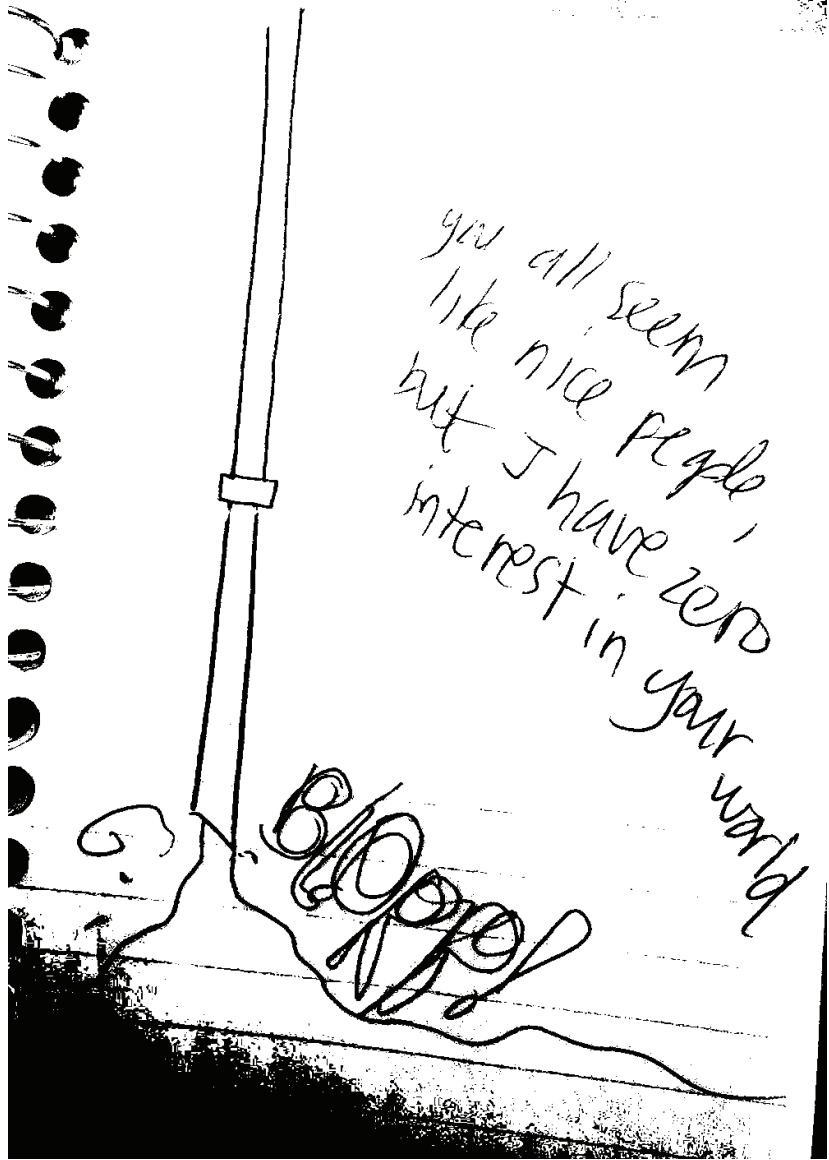 you all seem
like nice people,
but I have zero
interest in your
world
Bloppp!